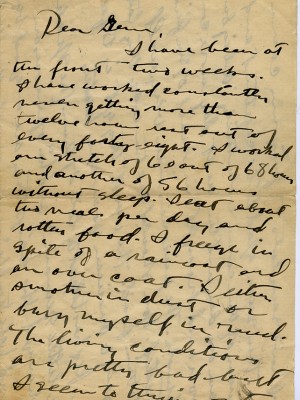 Dear Gem,
I have been at
the front two weeks.
I have worked constantly
never getting more than
twelve hours rest out of
every forty eight. I worked
one stretch of 60 out of 68 hours
and another of 56 hours
without sleep. I eat about
two meals per day and
rotten food. I freeze in
spite of a raincoat and
an over coat. I either
smother in dust or
bury myself in mud.
The living conditions
are pretty bad but
I seem to